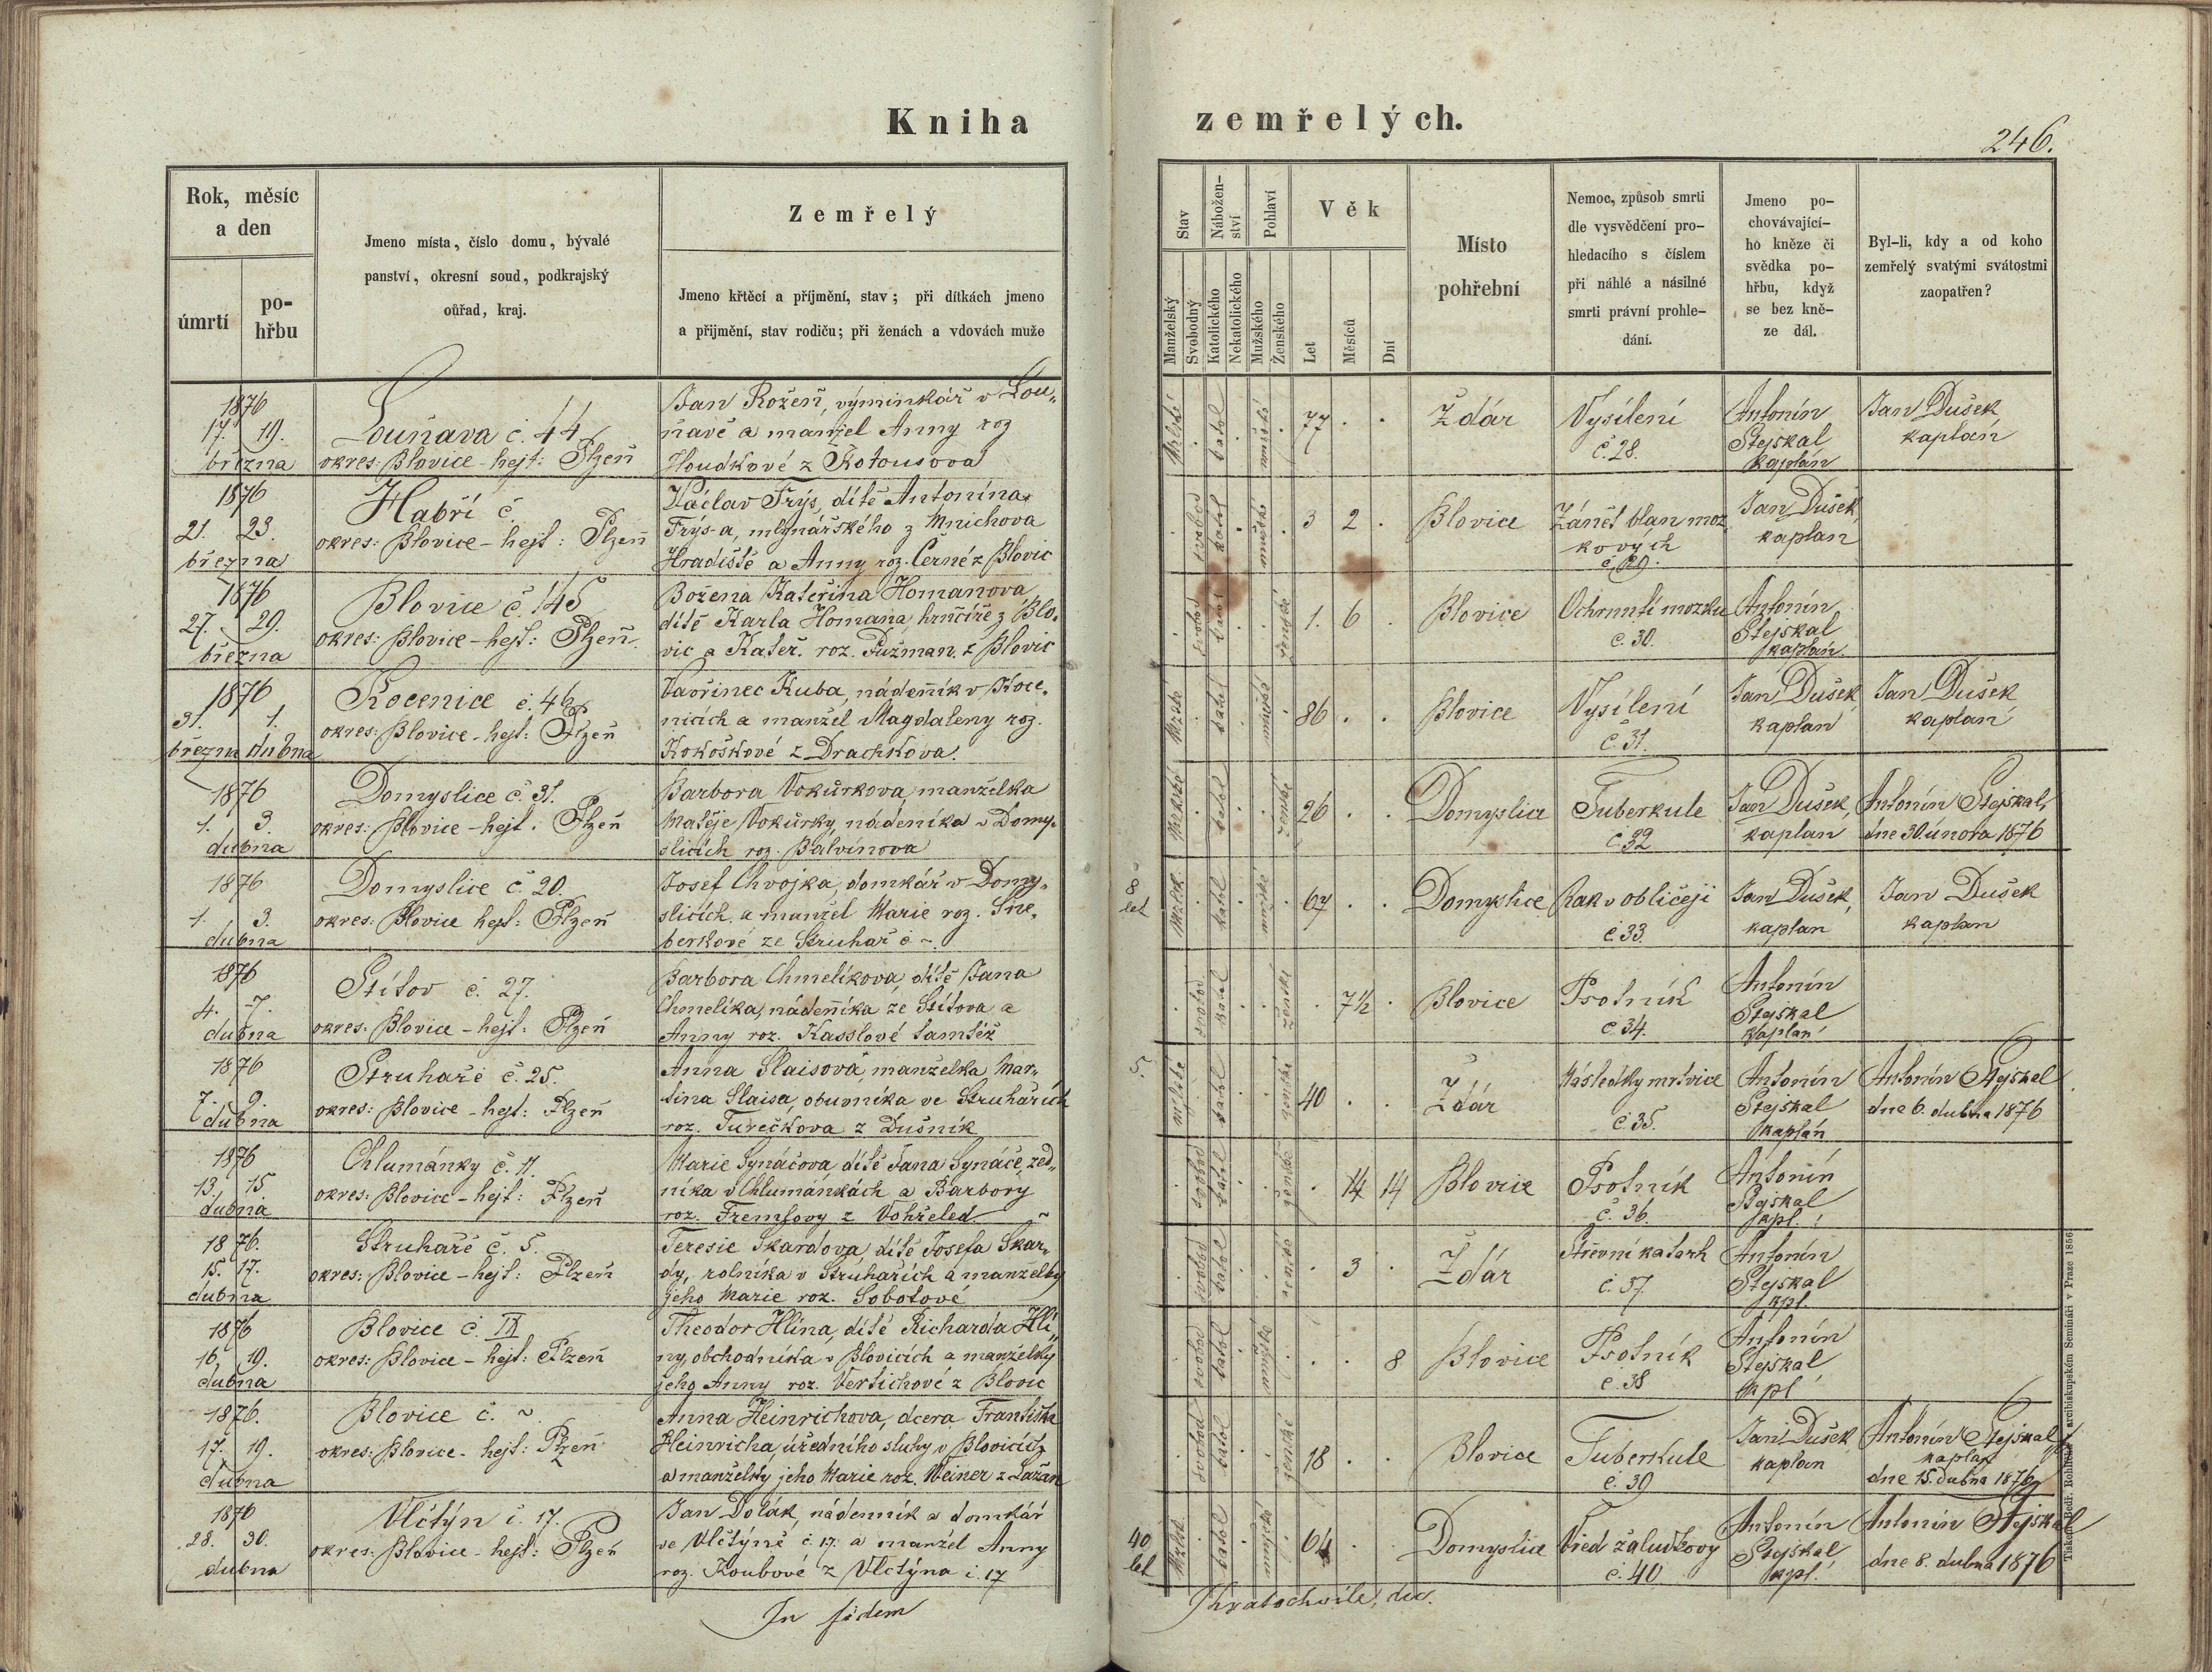 Kniha
zemřelých.
246.
Rok, měsíc
a den
úmrtí
po-
hřbu
Jmeno místa, číslo domu, bývalé
panství, okresní soud, podkrajský
ouřad, kraj.
Zemřelý
Jmeno křtěcí a příjmění, stav; při dítkách jmeno
a přijmění, stav rodiču; při ženách a vdovách muže
Stav
Manželský
Svobodný
Nábožen-
ství
Katolického
Nekatolického
Pohlaví
Mužského
Ženského
Věk
Let
Měsíců
Dní
Místo
pohřební
Nemoc, způsob smrti
dle vysvědčení pro-
hledacího s číslem
při náhlé a násilné
smrti právní prohle-
dání.
Jmeno po-
chovávající-
ho kněze či
svědka po-
hřbu, když
se bez kně-
ze dál.
Byl-li, kdy a od koho
zemřelý svatými svátostmi
zaopatřen?
1876
17. 19.
března
Louňava č. 44
okres: Blovice - hejt: Plzeň
Jan Rožeň, výminkář v Lou-
ňavě a manžel Anny roz
Houdkové z Kotousova
katol
mužské
77 . .
Ždár
Vysílení
č. 28.
Antonín
Stejskal
kaplán
Jan Dušek
kaplan
1876
21. 23.
března
Habří č.
okres: Blovice - hejt: Plzeň
Václav Frýs, dítě Antonína
Frýs-a, mlynářského z Mnichova
Hradiště a Anny roz. Černé z Blovic
svobod
katol
mužské
3 2 .
Blovice
Zánět blan moz
kových
č. 29.
Jan Dušek
kaplan
1876
27. 29.
března
Blovice č. 145
okres: Blovice - hejt: Plzeň
Božena Kateřina Homanova
dítě Karla Homana, hrnčíře z Blo-
vic a Kateř. roz. Fužman. z Blovic
svobod
katol
ženské
1. 6 .
Blovice
Ochrnutí mozku
č. 30.
Antonín
Stejskal
kaplán.
1876
31. 1.
března dubna
Kocenice č. 46
okres: Blovice - hejt: Plzeň
Vavřinec Kuba, nádenník v Koce-
nicích a manžel Magdaleny roz.
Kokoškové z Drachkova.
katol
mužské
86 . .
Blovice
Vysílení
č. 31.
Jan Dušek
kaplan
Jan Dušek
kaplan
1876
1. 3.
dubna
Domyslice č. 31.
okres: Blovice - hejt: Plzeň
Barbora Vokůrkova, manželka
Matěje Vokůrky, nádeníka v Domy-
slicích roz. Balvínova
katol
ženské
26 . .
Domyslice
Tuberkule
č. 32
Jan Dušek,
kaplan
Antonín Stejskal,
dne 30. února 1876
1876
1. 3.
dubna
Domyslice č. 20.
okres: Blovice hejt: Plzeň
Josef Chvojka, domkář v Domy-
slicích, a manžel Marie roz. Šne-
berkové ze Struhař č ~.
8
let
katol
mužské
67 . .
Domyslice
Rak v obličeji
č 33.
Jan Dušek,
kaplan
Jan Dušek
kaplan
1876
4. 7.
dubna
Štítov č. 27.
okres: Blovice - hejt: Plzeň
Barbora Chmelíkova, dítě Jana
Chmelíka, nádenníka ze Štítova a
Anny roz. Kasslové tamtéž
svobod.
katol
ženské
. 7½ .
Blovice
Psotník
č 34.
Antonín
Stejskal
kaplan
1876
7. 9.
dubna
Struhaře č. 25.
okres: Blovice - hejt: Plzeň
Anna Slaisova manželka Mar-
tina Slaisa, obuvníka ve Struhařích
roz. Turečkova z Dušník
5.
katol
ženské
40 . .
Ždár
Následky mrtvice
č 35.
Antonín
Stejskal
kaplán
Antonín Stejskal
dne 6. dubna 1876
1876
13. 15.
dubna
Chlumánky č. 11.
okres: Blovice - hejt: Plzeň
Marie Synáčova, dítě Jana Synáče, zed-
níka v Chlumánkách a Barbory
roz. Fremfovy z Vohřeled. ~
svobod
katol
ženské
. 14 14
Blovice
Psotník
č. 36.
Antonín
Stejskal
kpl.
1876.
15. 17.
dubna
Struhaře č. 5.
okres: Blovice - hejt: Plzeň
Teresie Skardova, dítě Josefa Skar-
dy, rolníka v Struhařích a manželky
jeho Marie roz. Sobotové
svobod
katol
ženské
. 3 .
Ždár
Střevní katarh
č. 37.
Antonín
Stejskal
kpl.
1876
16. 19.
dubna
Blovice č. IX
okres: Blovice - hejt: Plzeň
Theodor Hlína, dítě Richarda Hlí-
ny, obchodníka v Blovicích a manželky
jeho Anny roz. Vertichové z Blovic
svobod
katol
mužské
. . 8
Blovice
Psotník
č 38
Antonín
Stejskal
kpl
1876.
17. 19.
dubna
Blovice č. ~
okres: Blovice - hejt: Plzeň
Anna Heinrichova, dcera Františka
Heinricha, úředního sluhy v Blovicích
a manželky jeho Marie roz. Weiner z Lažan
svobod
katol
ženské
18 . .
Blovice
Tuberkule
č. 39
Jan Dušek
kaplan
Antonín Stejskal
kaplan
dne 15. dubna 1876
1876
28. 30.
dubna
Vlčtýn č. 17.
okres: Blovice - hejt: Plzeň
Jan Dolák, nádenník a domkář
ve Vlčtýně č 17. a manžel Anny
roz. Koubové z Vlčtýna č 17
40
let
katol
mužské
64 . .
Domyslice
Vřed žaludkovy
č. 40
Antonín
Stejskal,
kpl.
Antonín Stejskal
dne 8. dubna 1876
In fidem
Kratochvile, dec.
Tiskem Bedř. Rohlíčka v arcibiskupském Semináři v Praze 1856